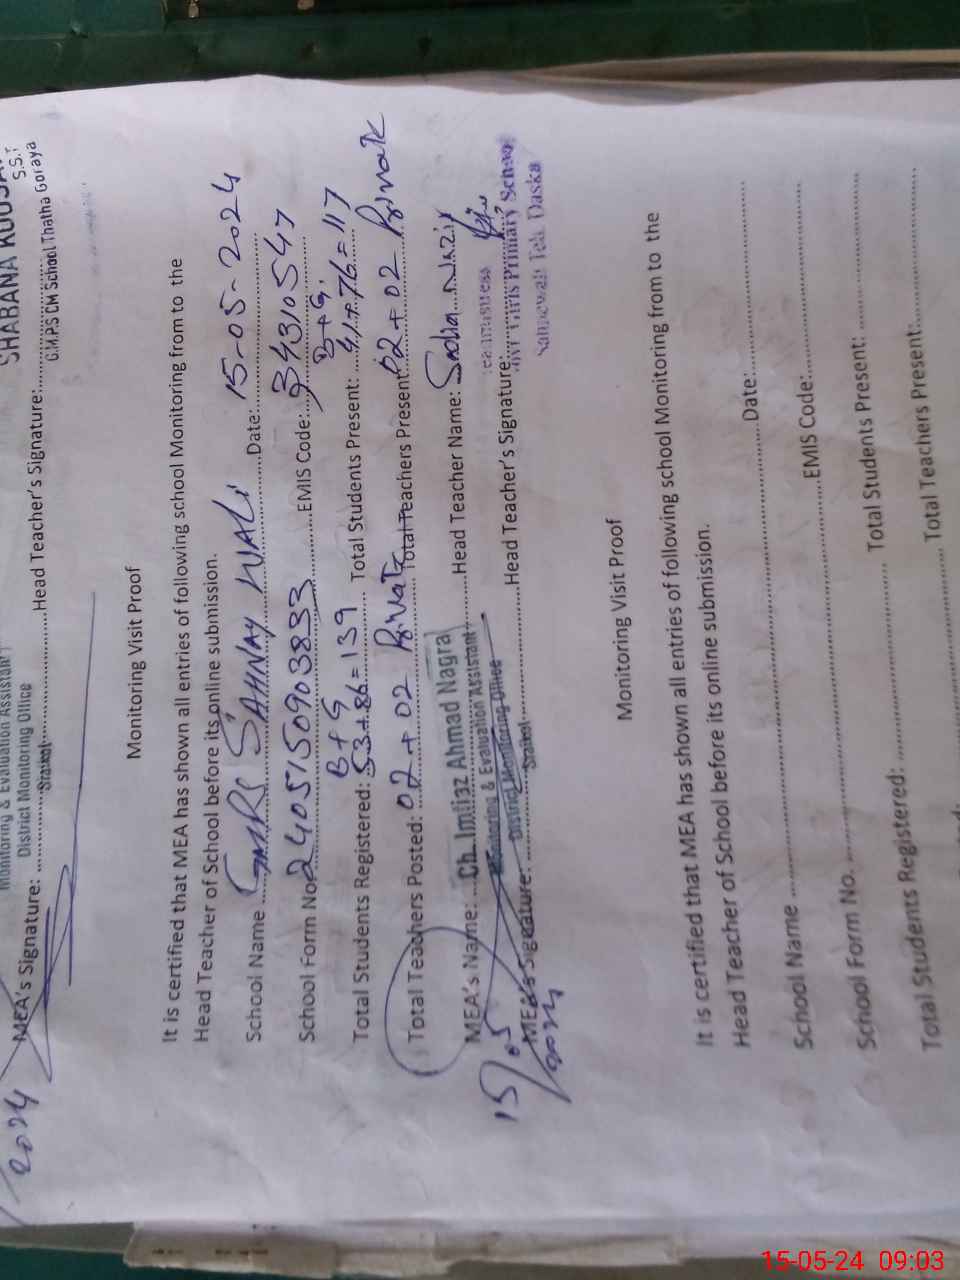 SHABANA
S.S.T
Monitoring & Evaluation Assistant
District Monitoring Office
Sialkot
G.M.P.S CM School Thatha Goraya
MEA's Signature: Head Teacher's Signature:
2024
Monitoring Visit Proof
It is certified that MEA has shown all entries of following school Monitoring from to the
Head Teacher of School before its online submission.
School Name GMPS SAHNAY WALi Date: 15-05-2024
School Form No. 2405150903833 EMIS Code: 34310547
B+G B+G.
Total Students Registered: 53+86=139 Total Students Present: 41+76=117
Total Teachers Posted: 02+02 Private Total Teachers Present: 02+02 Private
MEA's Name: Ch. Imtiaz Ahmad Nagra Head Teacher Name: Sadia Nazir
Monitoring & Evaluation Assistant
District Monitoring Office
Sialkot
MEA's Signature: Head Teacher's Signature:
Girls Primary School
Teh. Daska
15/05
2024
Monitoring Visit Proof
It is certified that MEA has shown all entries of following school Monitoring from to the
Head Teacher of School before its online submission.
School Name Date:
School Form No. EMIS Code:
Total Students Registered: Total Students Present:
Total Teachers Present:
15-05-24 09:03